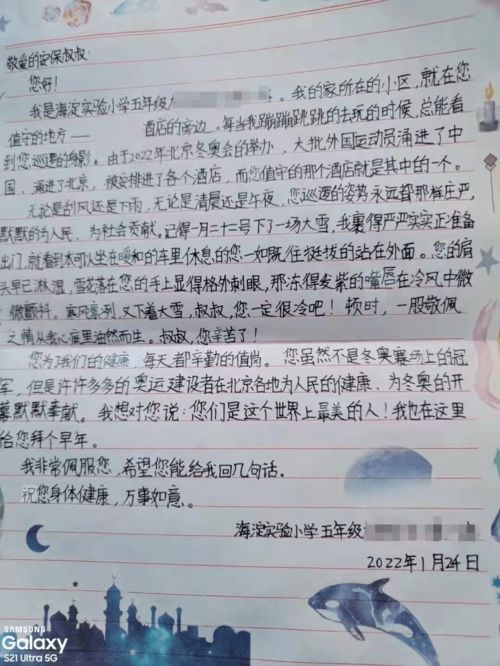 敬爱的安保叔叔:
您好!
我是海淀实验小学五年级 。我的家所在的小区,就在您
值守的地方—— 酒店的旁边。每当我蹦蹦跳跳的去玩的时候,总能看
到您巡逻的身影。由于2022年北京冬奥会的举办,大批外国运动员涌进了中
国、涌进了北京,被安排进了各个酒店,而您值守的那个酒店就是其中的一个。
无论是刮风还是下雨,无论是清晨还是午夜,您巡逻的姿势永远都那样庄严,
默默的为人民、为社会贡献。记得一月二十二号下了一场大雪,我裹得严严实实正准备
出门,就看到本可以坐在暖和的车里休息的您一如既往挺拔的站在外面。您的肩
头早已淋湿,雪花落在您的手上显得格外刺眼,那冻得发紫的嘴唇在冷风中微
微颤抖。寒风凛冽,又下着大雪,叔叔,您一定很冷吧!顿时,一股敬佩
之情从我心底里油然而生。叔叔,您辛苦了!
您为了我们的健康,每天都辛勤的值岗。您虽然不是冬奥赛场上的冠
军,但是许许多多的奥运建设者在北京各地为人民的健康、为冬奥的开
幕默默奉献。我想对您说:您们是这个世界上最美的人!我也在这里
给您拜个早年。
我非常佩服您,希望您能给我回几句话。
祝您身体健康,万事如意。
海淀实验小学五年级
2022年1月24日
SAMSUNG
Galaxy
S21 Ultra 5G